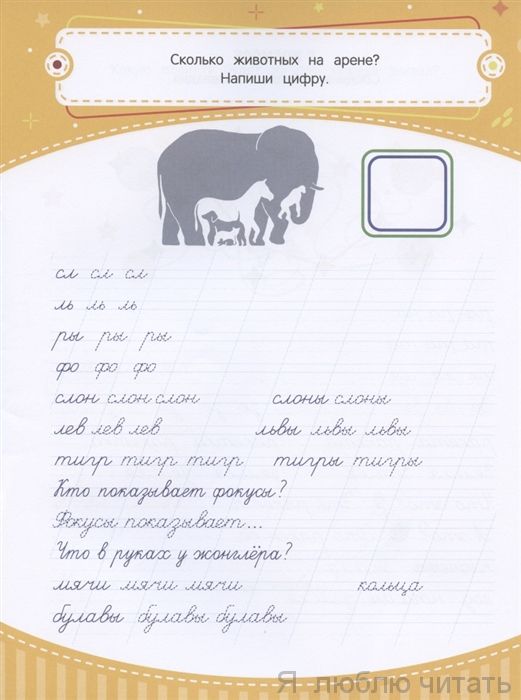 Сколько животных на арене?
Напиши цифру.
сл сл сл
ль ль ль
ры ры ры
фо фо фо
слон слон слон слоны слоны
лев лев лев львы львы львы
тигр тигр тигр тигры тигры
Кто показывает фокусы?
Фокусы показывает...
Что в руках у жонглёра?
мячи мячи мячи кольца
булавы булавы булавы
Я люблю читать